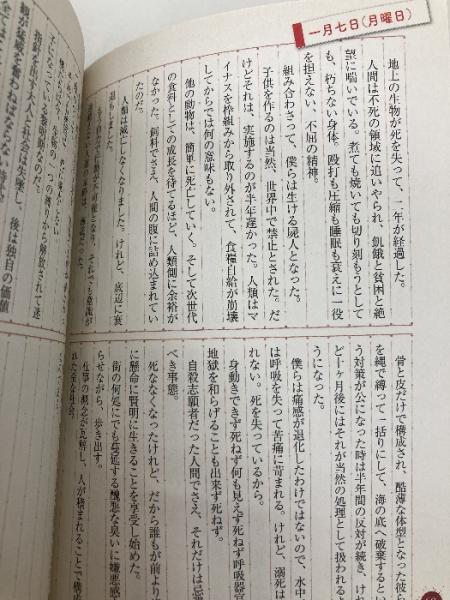 一月七日(月曜日)
地上の生物が死を失って、二年が経過した。
人間は不死の領域に追いやられ、飢餓と貧困と絶
望に喘いでいる。煮ても焼いても切り刻もうとして
も、朽ちない身体。殴打も圧縮も睡眠も衰えに一役
を担えない、不屈の精神。
組み合わさって、僕らは生ける屍人となった。
子供を作るのは当然、世界中で禁止とされた。だ
けどそれは、実施するのが半年遅かった。人類はマ
イナスを枠組みから取り外されて、食糧自給が崩壊
してからでは何の意味もない。
他の動物は、簡単に死亡していく。そして次世代
の食料としての成長を待てるほど、人類側に余裕が
なかった。飼料でさえ、人間の腹に詰め込まれてい
たのだ。
人類は滅亡しなくなりました。けれど、底辺に衰
退もしました。
骨と皮だけで構成され、酷薄な体型となった彼ら
を縄で縛って一括りにして、海の底へ破棄するとい
う対策が公になった時は半年間の反対が続き、けれ
ど一ヶ月後にはそれが当然の処理として扱われるよ
うになった。
僕らは痛感が退化したわけではないので、水中
は呼吸を失って苦痛に苛まれる。けれど、溺死は
れない。死を失っているから。
身動きできず死ねず何も見えず死ねず呼吸器官
地獄を和らげることも出来ず死ねず。
自殺志願者だった人間でさえ、それだけは忌
べき事態。
死ななくなったけれど、だから誰もが前より
に懸命に賢明に生きることを享受し始めた。
街の何処にでも蔓延する醜悪な臭いに嫌悪感
らせながら、歩き出す。
仕事の概念が瓦解し、人が積まれることで構成